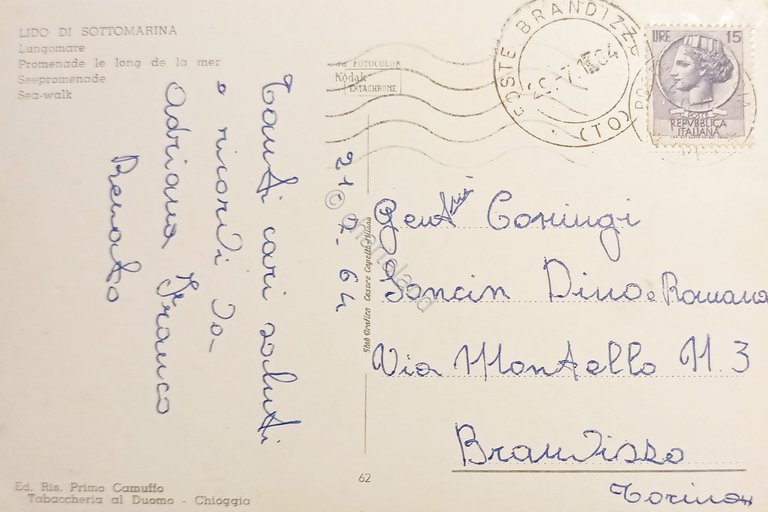 LIDO DI SOTTOMARINA
Lungomare
Promenade le long de la mer
Seepromenade
Sea-walk
Tanti cari saluti
e ricordi da
Adriana Franco
Renato
FOTOCOLOR
Kodak
EKTACHROME
POSTE BRANDIZZO
(TO)
LIRE 15
POSTE
REPVBBLICA
ITALIANA
21 7-64
© oldcartoland
Gent mi Coniugi
Soncin Dino e Romana
Via Montello N. 3
Brandizzo
Torino
Stab Grafico Cesare Capello Milano
62
Ed. Ris. Primo Camuffo
Tabaccheria al Duomo - Chioggia